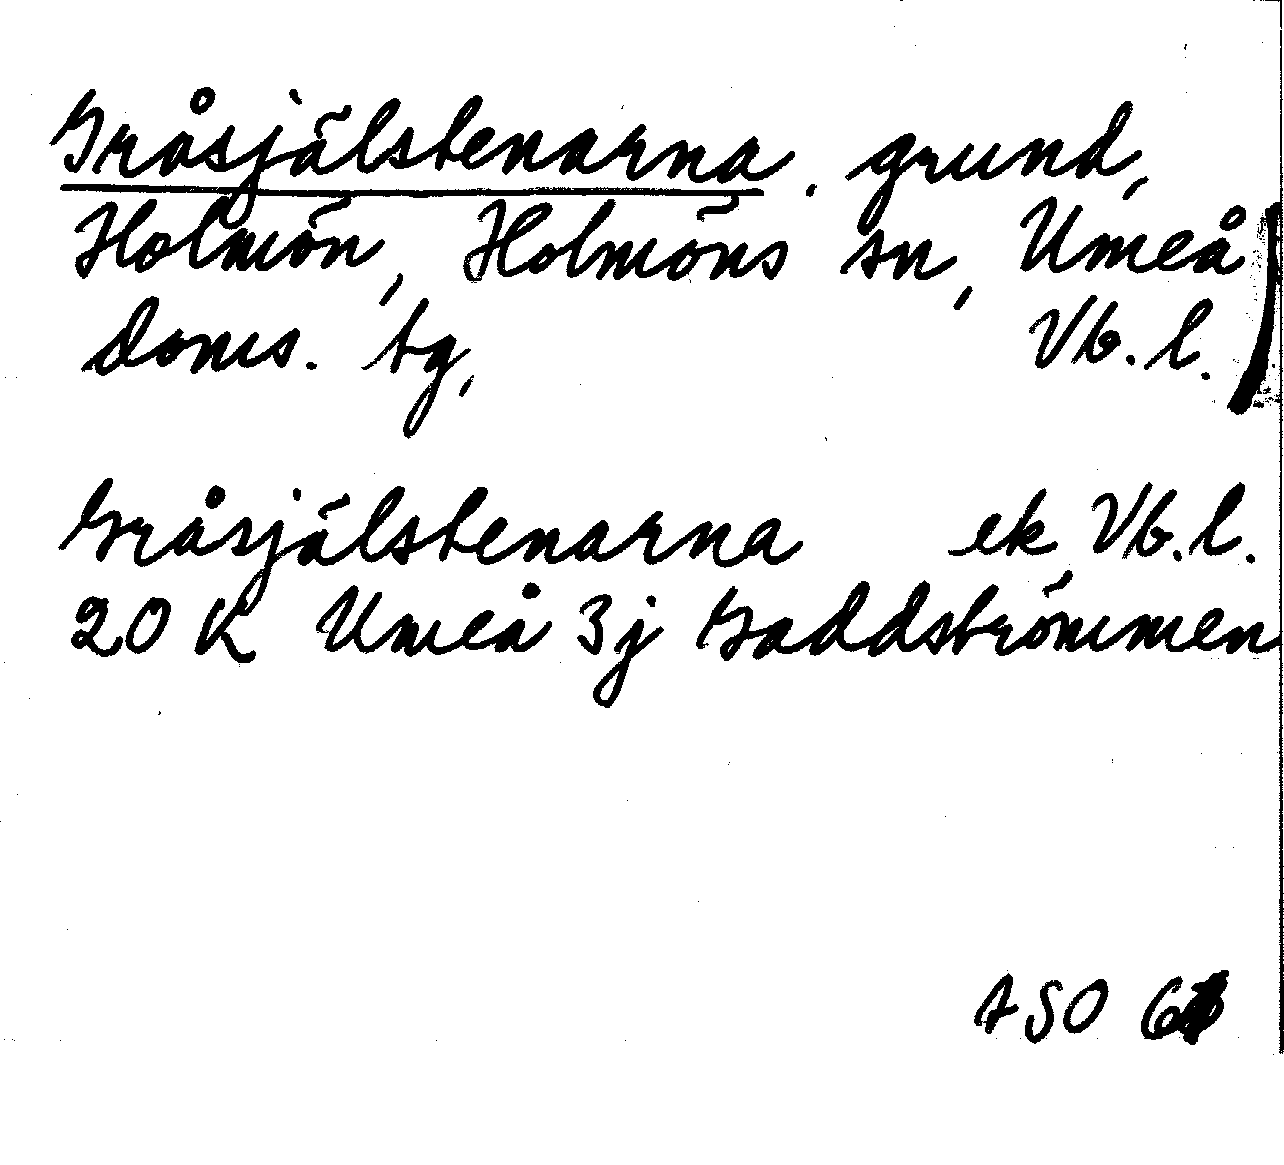 Gråsjälstenarna. grund,
Holmön, Holmöns sn, Umeå
doms. tg, Vb. l.
Gråsjälstenarna ek Vb. l.
20 K Umeå 3j Gaddströmmen
ASO